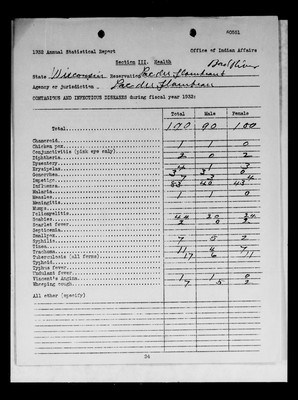 80551
1933 Annual Statistical Report Office of Indian Affairs
Section III. Health
State Wisconsin Reservation Lac du Flambeau Bad River
Agency or jurisdiction Lac du Flambeau
CONTAGIOUS AND INFECTIOUS DISEASES during fiscal year 1933:
Total Male Female
Total 190 90 100
Chancroid
Chicken pox 1 1 0
Conjunctivitis (pink eye only)
Diphtheria 2 0 2
Dysentery
Erysipelas 4 1 3
Gonorrhea 3 3 0
Impetigo 7 3 4
Influenza 83 40 43
Malaria
Measles 1 1 0
Meningitis
Mumps
Poliomyelitis
Scabies 44 20 24
Scarlet fever 2 0 2
Septicemia
Smallpox
Syphilis 7 5 2
Tinea
Trachoma 11 4 7
Tuberculosis (all forms) 17 6 11
Typhoid
Typhus fever
Undulant fever
Vincent's Angina 1 1 0
Whooping cough 7 5 2
All other (specify)
34